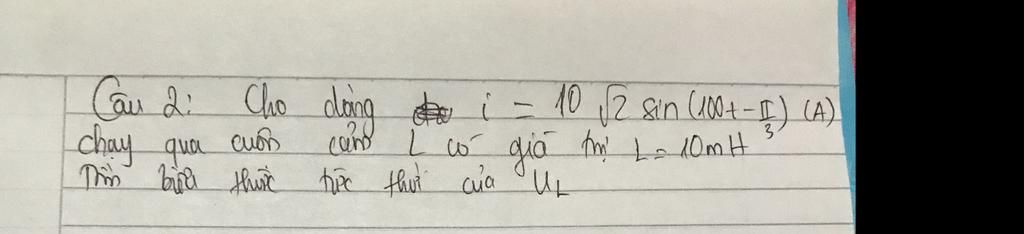 Câu 2: Cho dòng i = 10 √2 sin (100t - π/3) (A)
chạy qua cuộn cảm L có giá trị L = 10mH
Tìm biểu thức tức thời của UL